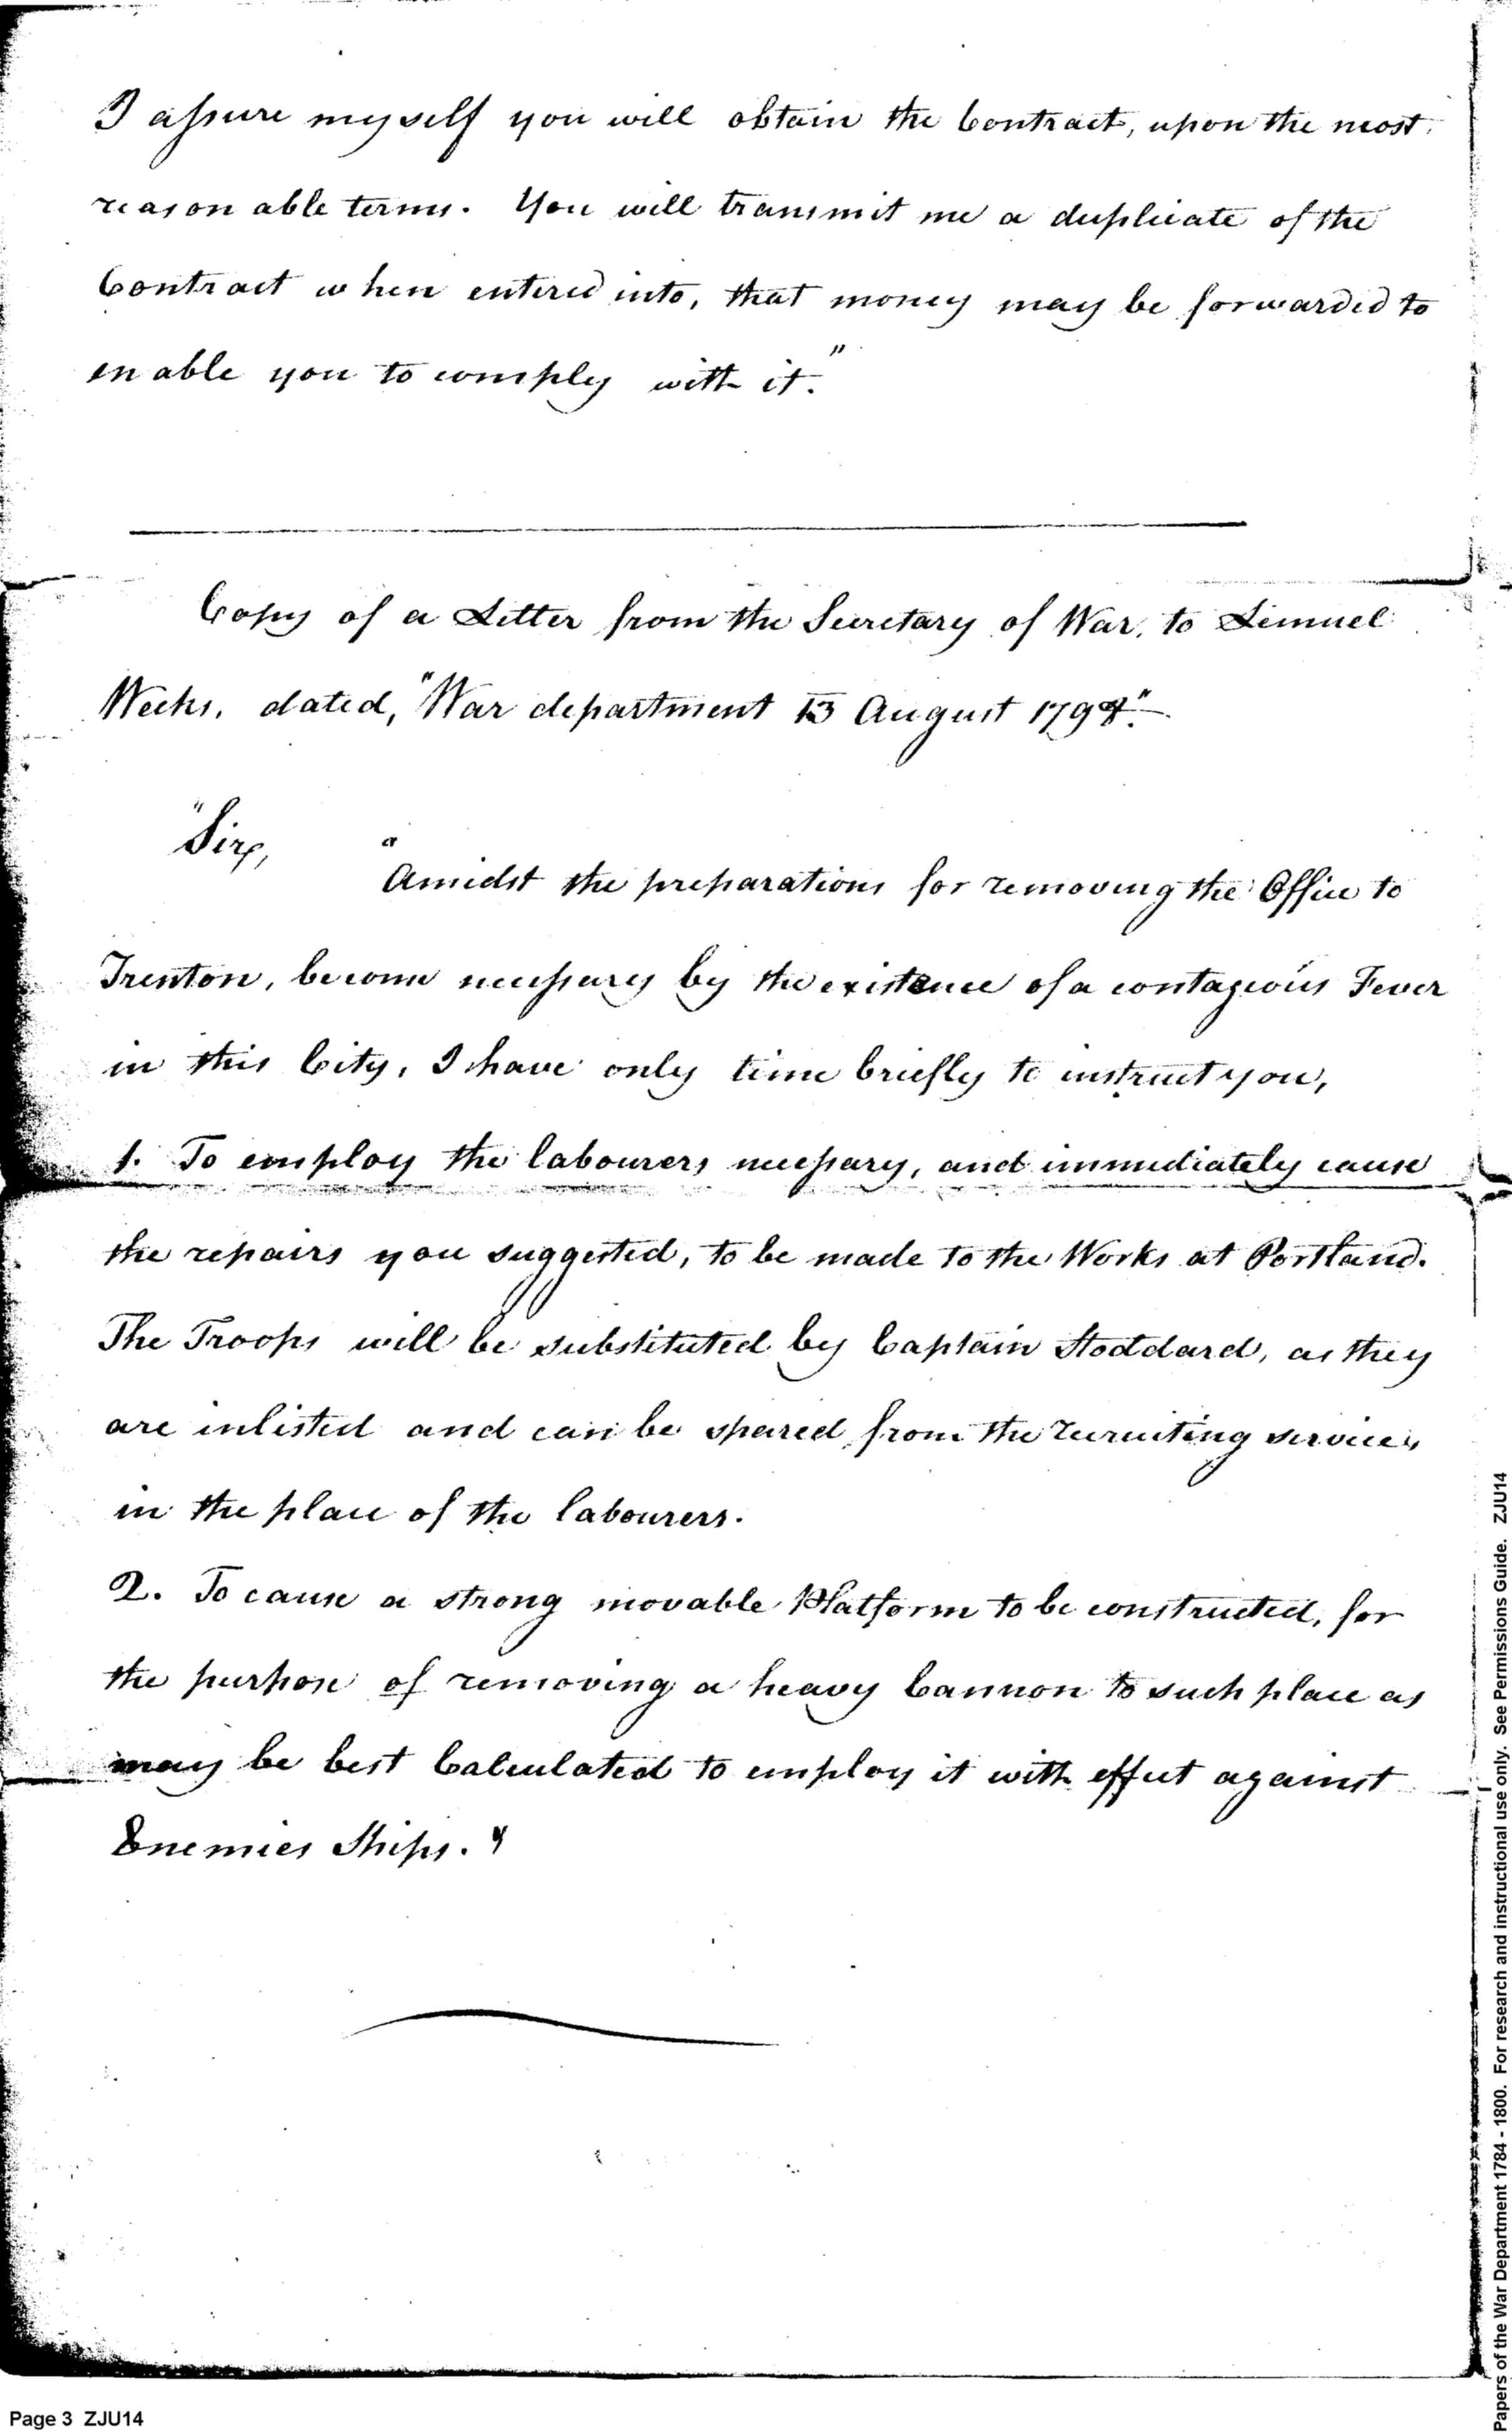 I assure myself you will obtain the Contract, upon the most
reasonable terms. You will transmit me a duplicate of the
Contract when entered into, that money may be forwarded to
enable you to comply with it."
Copy of a Letter from the Secretary of War, to Lemuel
Weeks, dated, "War department 13 August 1798".
"Sir,
"Amidst the preparations for removing the Office to
Trenton, become necessary by the existence of a contagious Fever
in this City, I have only time briefly to instruct you,
1. To employ the labourers necessary, and immediately cause
the repairs you suggested, to be made to the Works at Portland.
The Troops will be substituted by Captain Stoddard, as they
are inlisted and can be spared from the recruiting service,
in the place of the labourers.
2. To cause a strong movable Platform to be constructed, for
the purpose of removing a heavy Cannon to such place as
may be best Calculated to employ it with effect against
Enemies Ships."
Page 3 ZJU14
Papers of the War Department 1784 - 1800. For research and instructional use only. See Permissions Guide. ZJU14